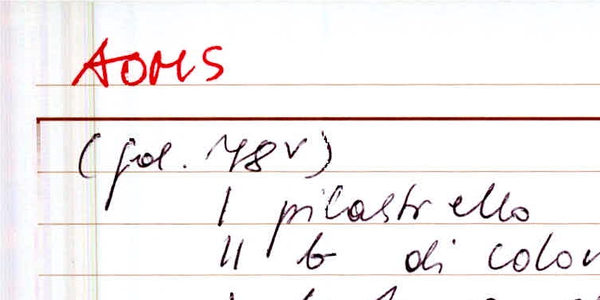 AOMS
(fol. 78v)
I pilastrello
II b di color